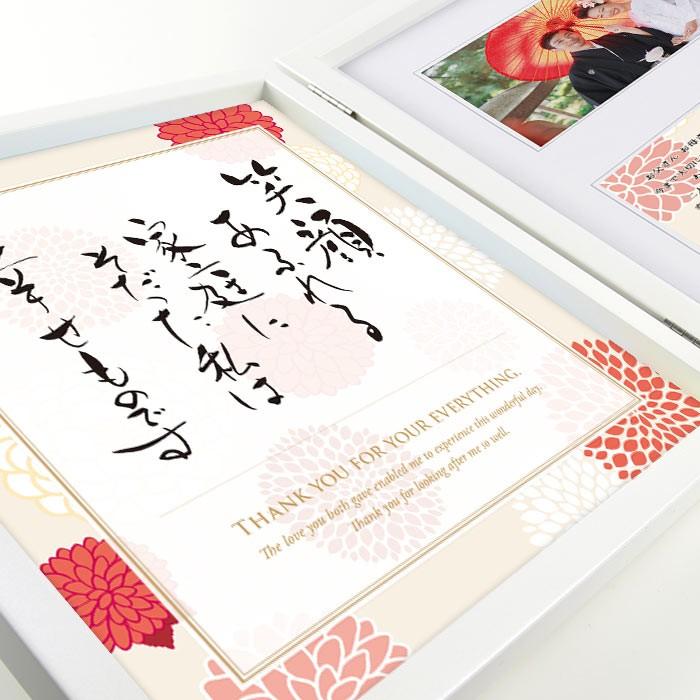 笑顔
あふれる
家庭に
そだった私は
幸せものです
THANK YOU FOR YOUR EVERYTHING.
The love you both gave enabled me to experience this wonderful day.
Thank you for looking after me so well.
お父さん お母